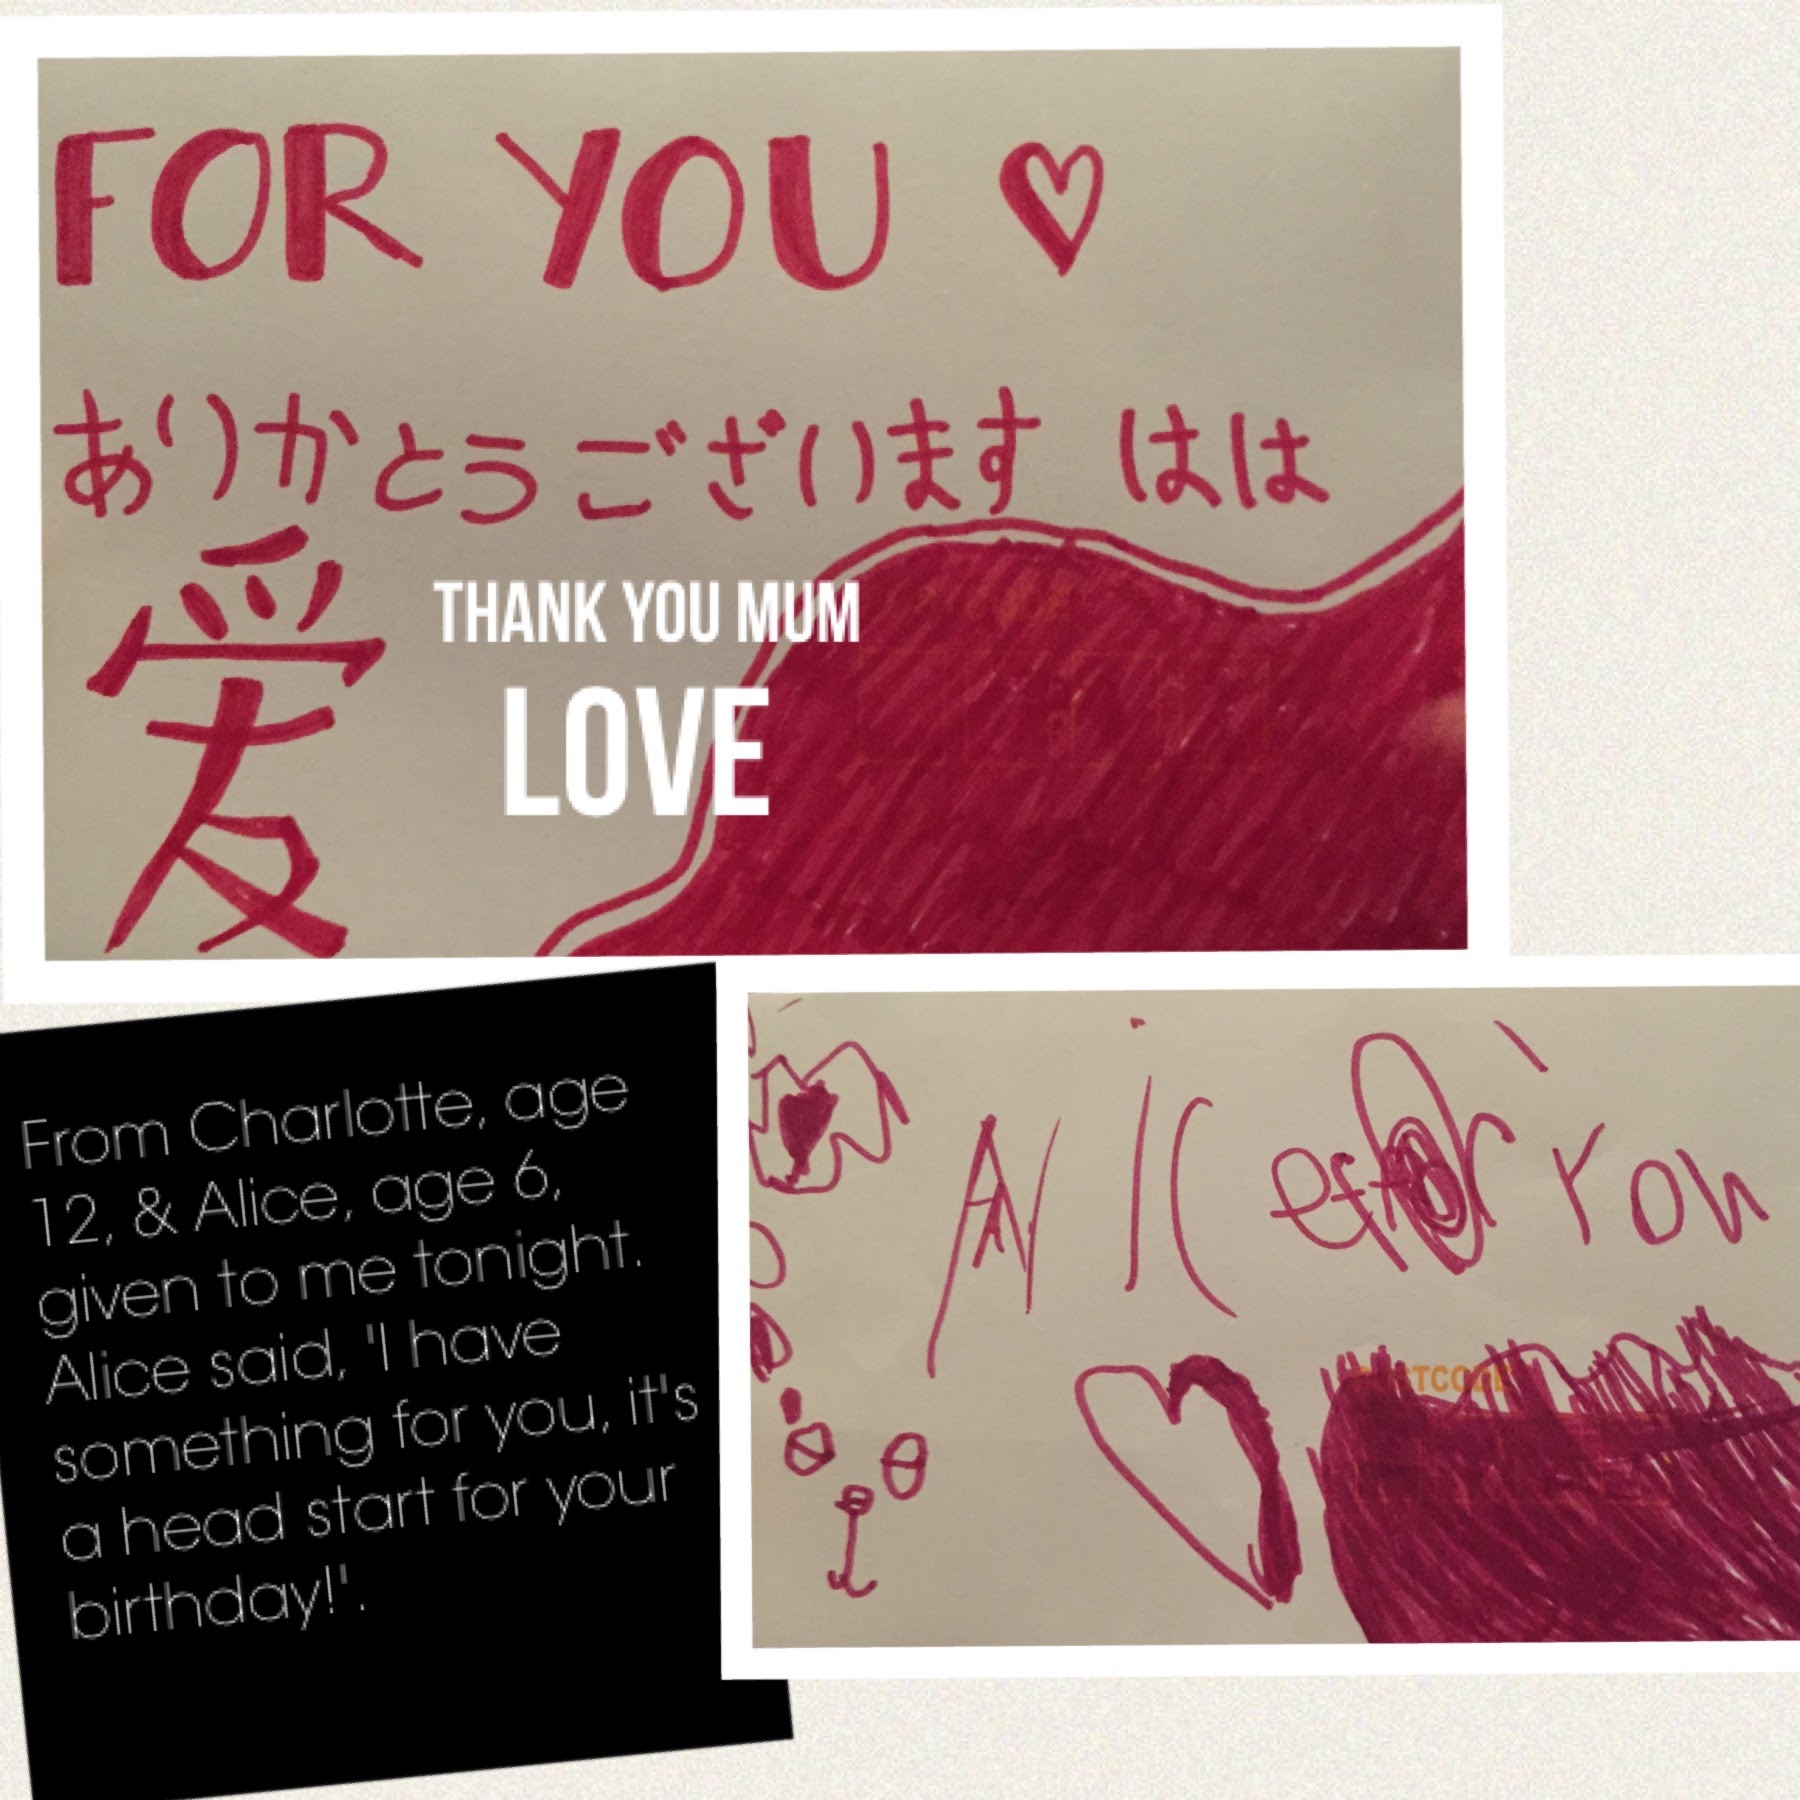 FOR YOU ♡
ありかとうございます はは
愛
THANK YOU MUM
LOVE
From Charlotte, age
12, & Alice, age 6,
given to me tonight.
Alice said, 'I have
something for you, it's
a head start for your
birthday!'.
Alice for You